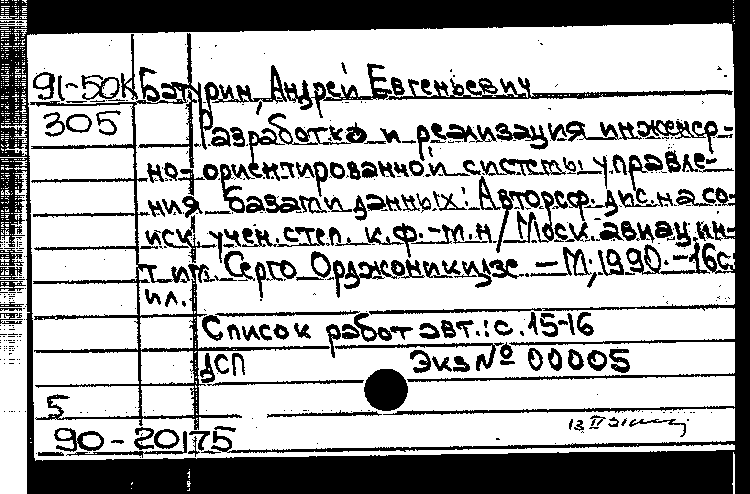 91-50К Батурин, Андрей Евгеньевич
305 Разработка и реализация инженер-
но-ориентированной системы управле-
ния базами данных: Автореф. дис. на со-
иск. учен. степ. к.ф.-м.н / Моск. авиац. ин-
т им. Серго Орджоникидзе - М., 1990. - 16с.:
ил.
Список работ авт.: с. 15-16
ДСП Экз № 00005
5
90-20175